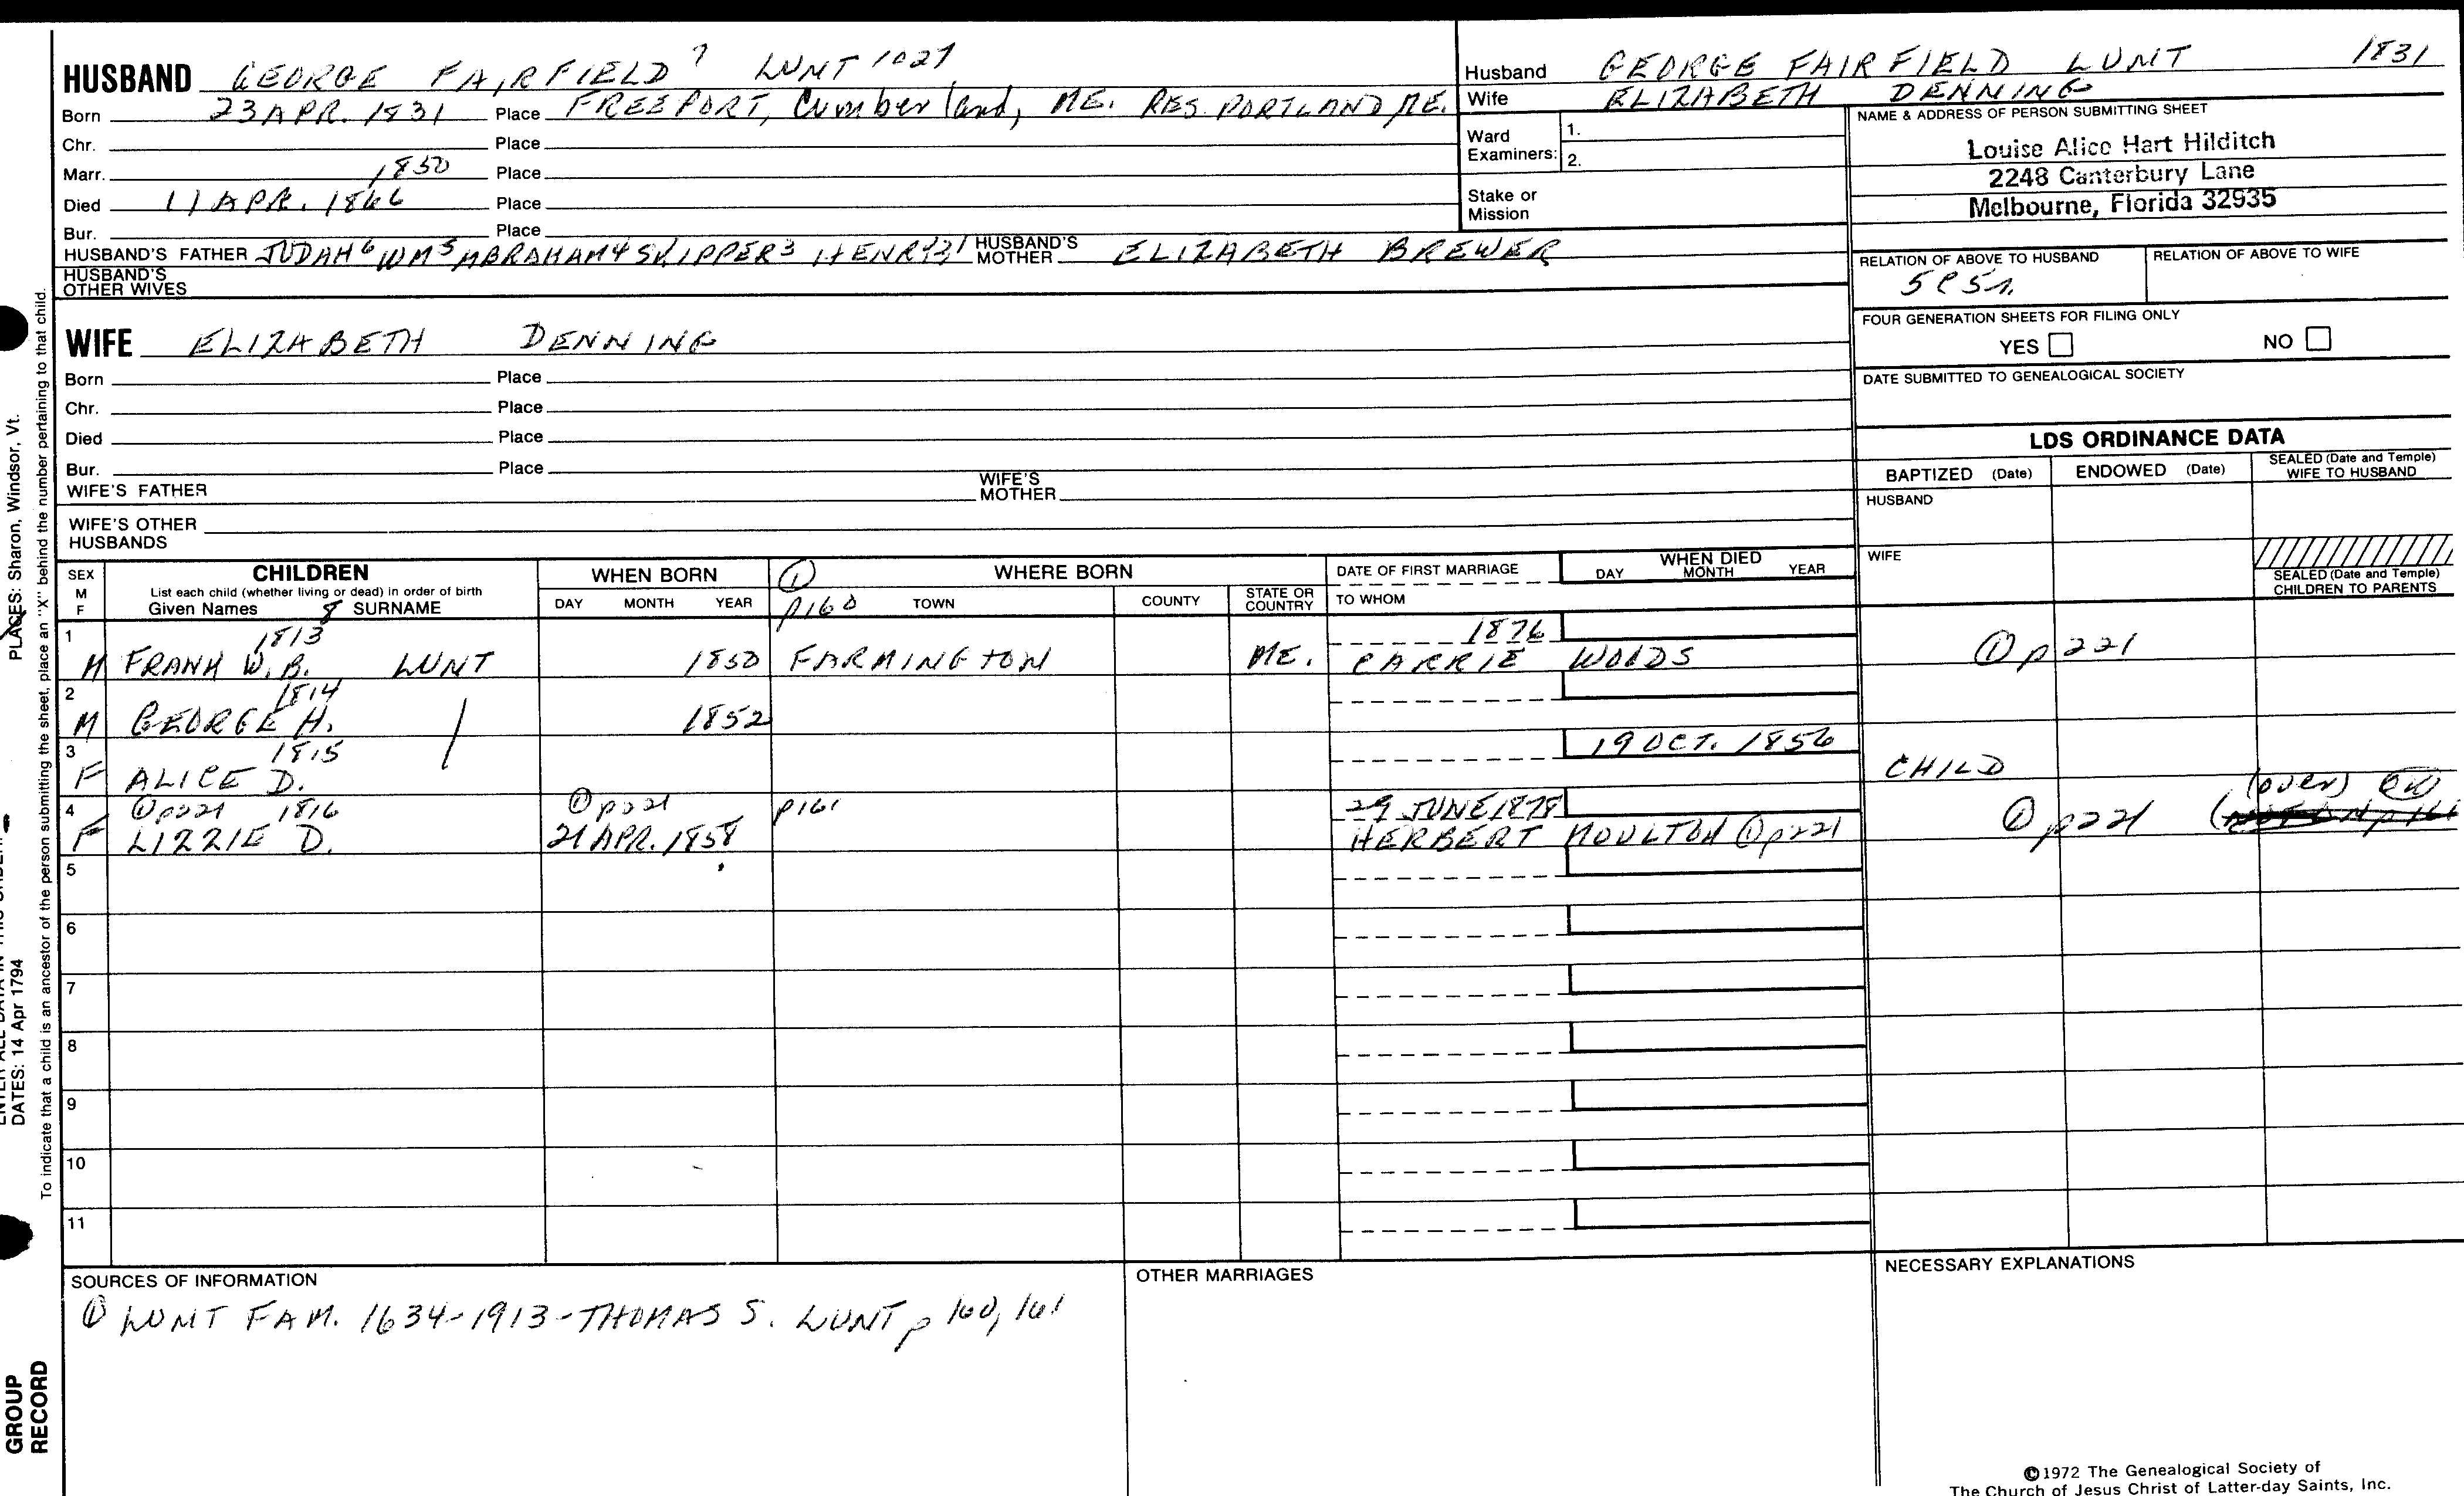 HUSBAND GEORGE FAIRFIELD 7 LUNT 1027
Born 23 APR. 1831 Place FREEPORT, Cumberland, ME. RES. PORTLAND ME.
Chr. Place
Marr. 1850 Place
Died 11 APR. 1866 Place
Bur. Place
HUSBAND'S FATHER JUDAH6 WM5 ABRAHAM4 SKIPPER3 HENRY21 HUSBAND'S MOTHER ELIZABETH BREWER
HUSBAND'S OTHER WIVES
WIFE ELIZABETH DENNING
Born Place
Chr. Place
Died Place
Bur. Place
WIFE'S FATHER WIFE'S MOTHER
WIFE'S OTHER HUSBANDS
Husband GEORGE FAIRFIELD LUNT 1831
Wife ELIZABETH DENNING
Ward Examiners: 1.
2.
Stake or Mission
NAME & ADDRESS OF PERSON SUBMITTING SHEET
Louise Alice Hart Hilditch
2248 Canterbury Lane
Melbourne, Florida 32935
RELATION OF ABOVE TO HUSBAND RELATION OF ABOVE TO WIFE
FOUR GENERATION SHEETS FOR FILING ONLY
YES NO
DATE SUBMITTED TO GENEALOGICAL SOCIETY
LDS ORDINANCE DATA
BAPTIZED (Date) ENDOWED (Date) SEALED (Date and Temple) WIFE TO HUSBAND
HUSBAND
WIFE
SEALED (Date and Temple) CHILDREN TO PARENTS
SEX M F CHILDREN WHEN BORN ① WHERE BORN DATE OF FIRST MARRIAGE WHEN DIED
List each child (whether living or dead) in order of birth
Given Names 8 SURNAME DAY MONTH YEAR p160 TOWN COUNTY STATE OR COUNTRY TO WHOM DAY MONTH YEAR
1 1813 1876
M FRANK W.B. LUNT 1850 FARMINGTON ME. CARRIE WOODS ① p221
2 1814
M GEORGE H. 1852
3 1815 19 OCT. 1856
F ALICE D. CHILD
4 ① p221 1816 ① p221 p161 29 JUNE 1878 (over)
F LIZZIE D. 21 APR. 1858 HERBERT MOULTON ① p221 ① p221
5
6
7
8
9
10
11
SOURCES OF INFORMATION
① LUNT FAM. 1634-1913-THOMAS S. LUNT p 160, 161
OTHER MARRIAGES
NECESSARY EXPLANATIONS
©1972 The Genealogical Society of
The Church of Jesus Christ of Latter-day Saints, Inc.
PLACES: Sharon, Windsor, Vt.
DATES: 14 Apr 1794
To indicate that a child is an ancestor of the person submitting the sheet, place an "X" behind the number pertaining to that child.
GROUP
RECORD